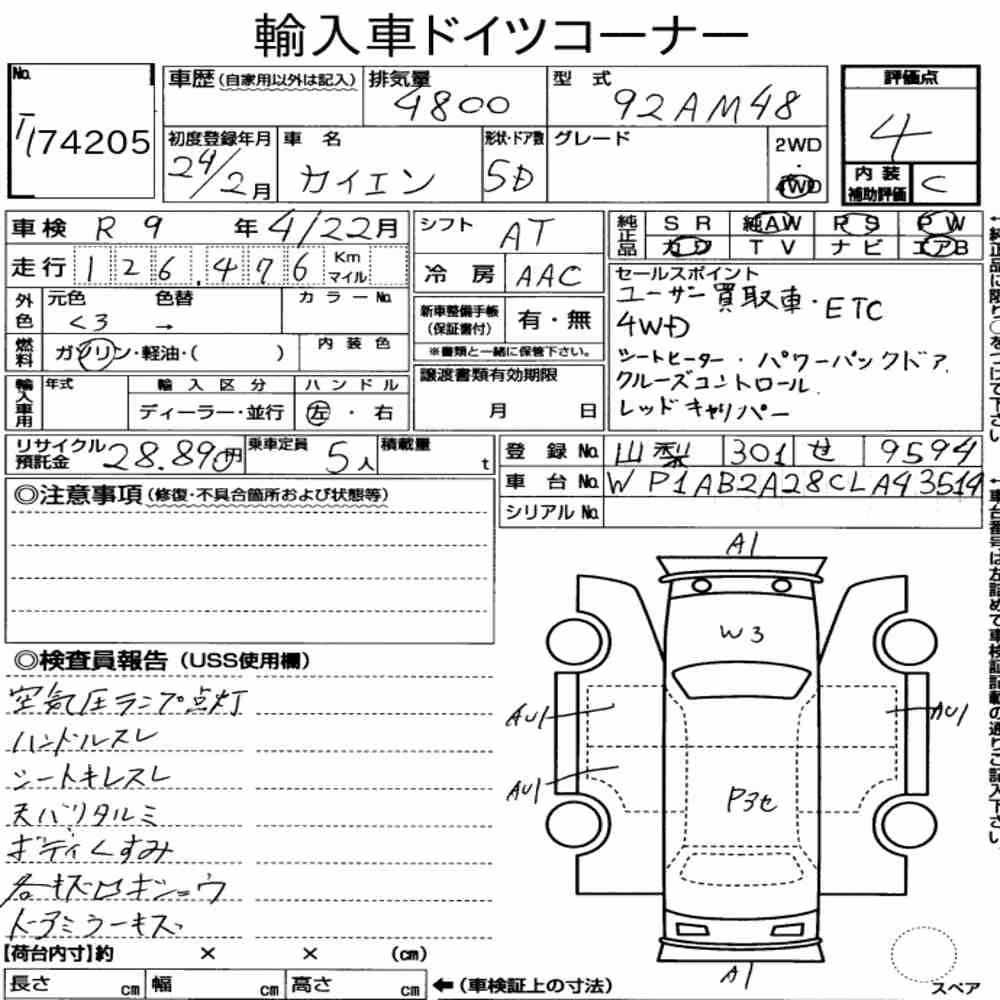 輸入車ドイツコーナー
No.
T/174205
車歴(自家用以外は記入)
排気量
4800
型 式
92AM48
評価点
4
初度登録年月
24/2月
車 名
カイエン
形状・ドア数
5D
グレード
2WD
・
4WD
内 装
補助評価
C
車検 R 9 年 4/22月
シフト AT
純正品
S R
純AW
P S
P W
カワ
T V
ナ ビ
エアB
走行 126,476 Km マイル
冷 房 AAC
外色
元色
色替
カ ラ ー No.
くろ →
燃料
ガソリン・軽油・( )
内 装 色
新車整備手帳
(保証書付)
有・無
※書類と一緒に保管下さい。
セールスポイント
ユーザー買取車・ETC
4WD
シートヒーター・パワーバックドア
クルーズコントロール
レッドキャリパー
輸入車用
年式
輸 入 区 分
ハ ン ド ル
ディーラー・並行
左 ・ 右
譲渡書類有効期限
月 日
リサイクル
預託金
28.890円
乗車定員
5人
積載量
t
登 録 No.
山梨 301 せ 9594
車 台 No.
WP1AB2A28CLA43514
シリアル No.
◎注意事項(修復・不具合箇所および状態等)
◎検査員報告(USS使用欄)
空気圧ランプ点灯
ハンドルスレ
シートキレスレ
天バリタルミ
ボディくすみ
各キズロギシュウ
ドアミラーキズ
A1
W3
AU1
AU1
AU1
P3セ
A1
【荷台内寸】約 × × (cm)
長さ cm
幅 cm
高さ cm
←(車検証上の寸法)
スペア
↑純正品に限り○をつけて下さい。
↑車台番号は左詰めで車検証記載の通りご記入下さい。